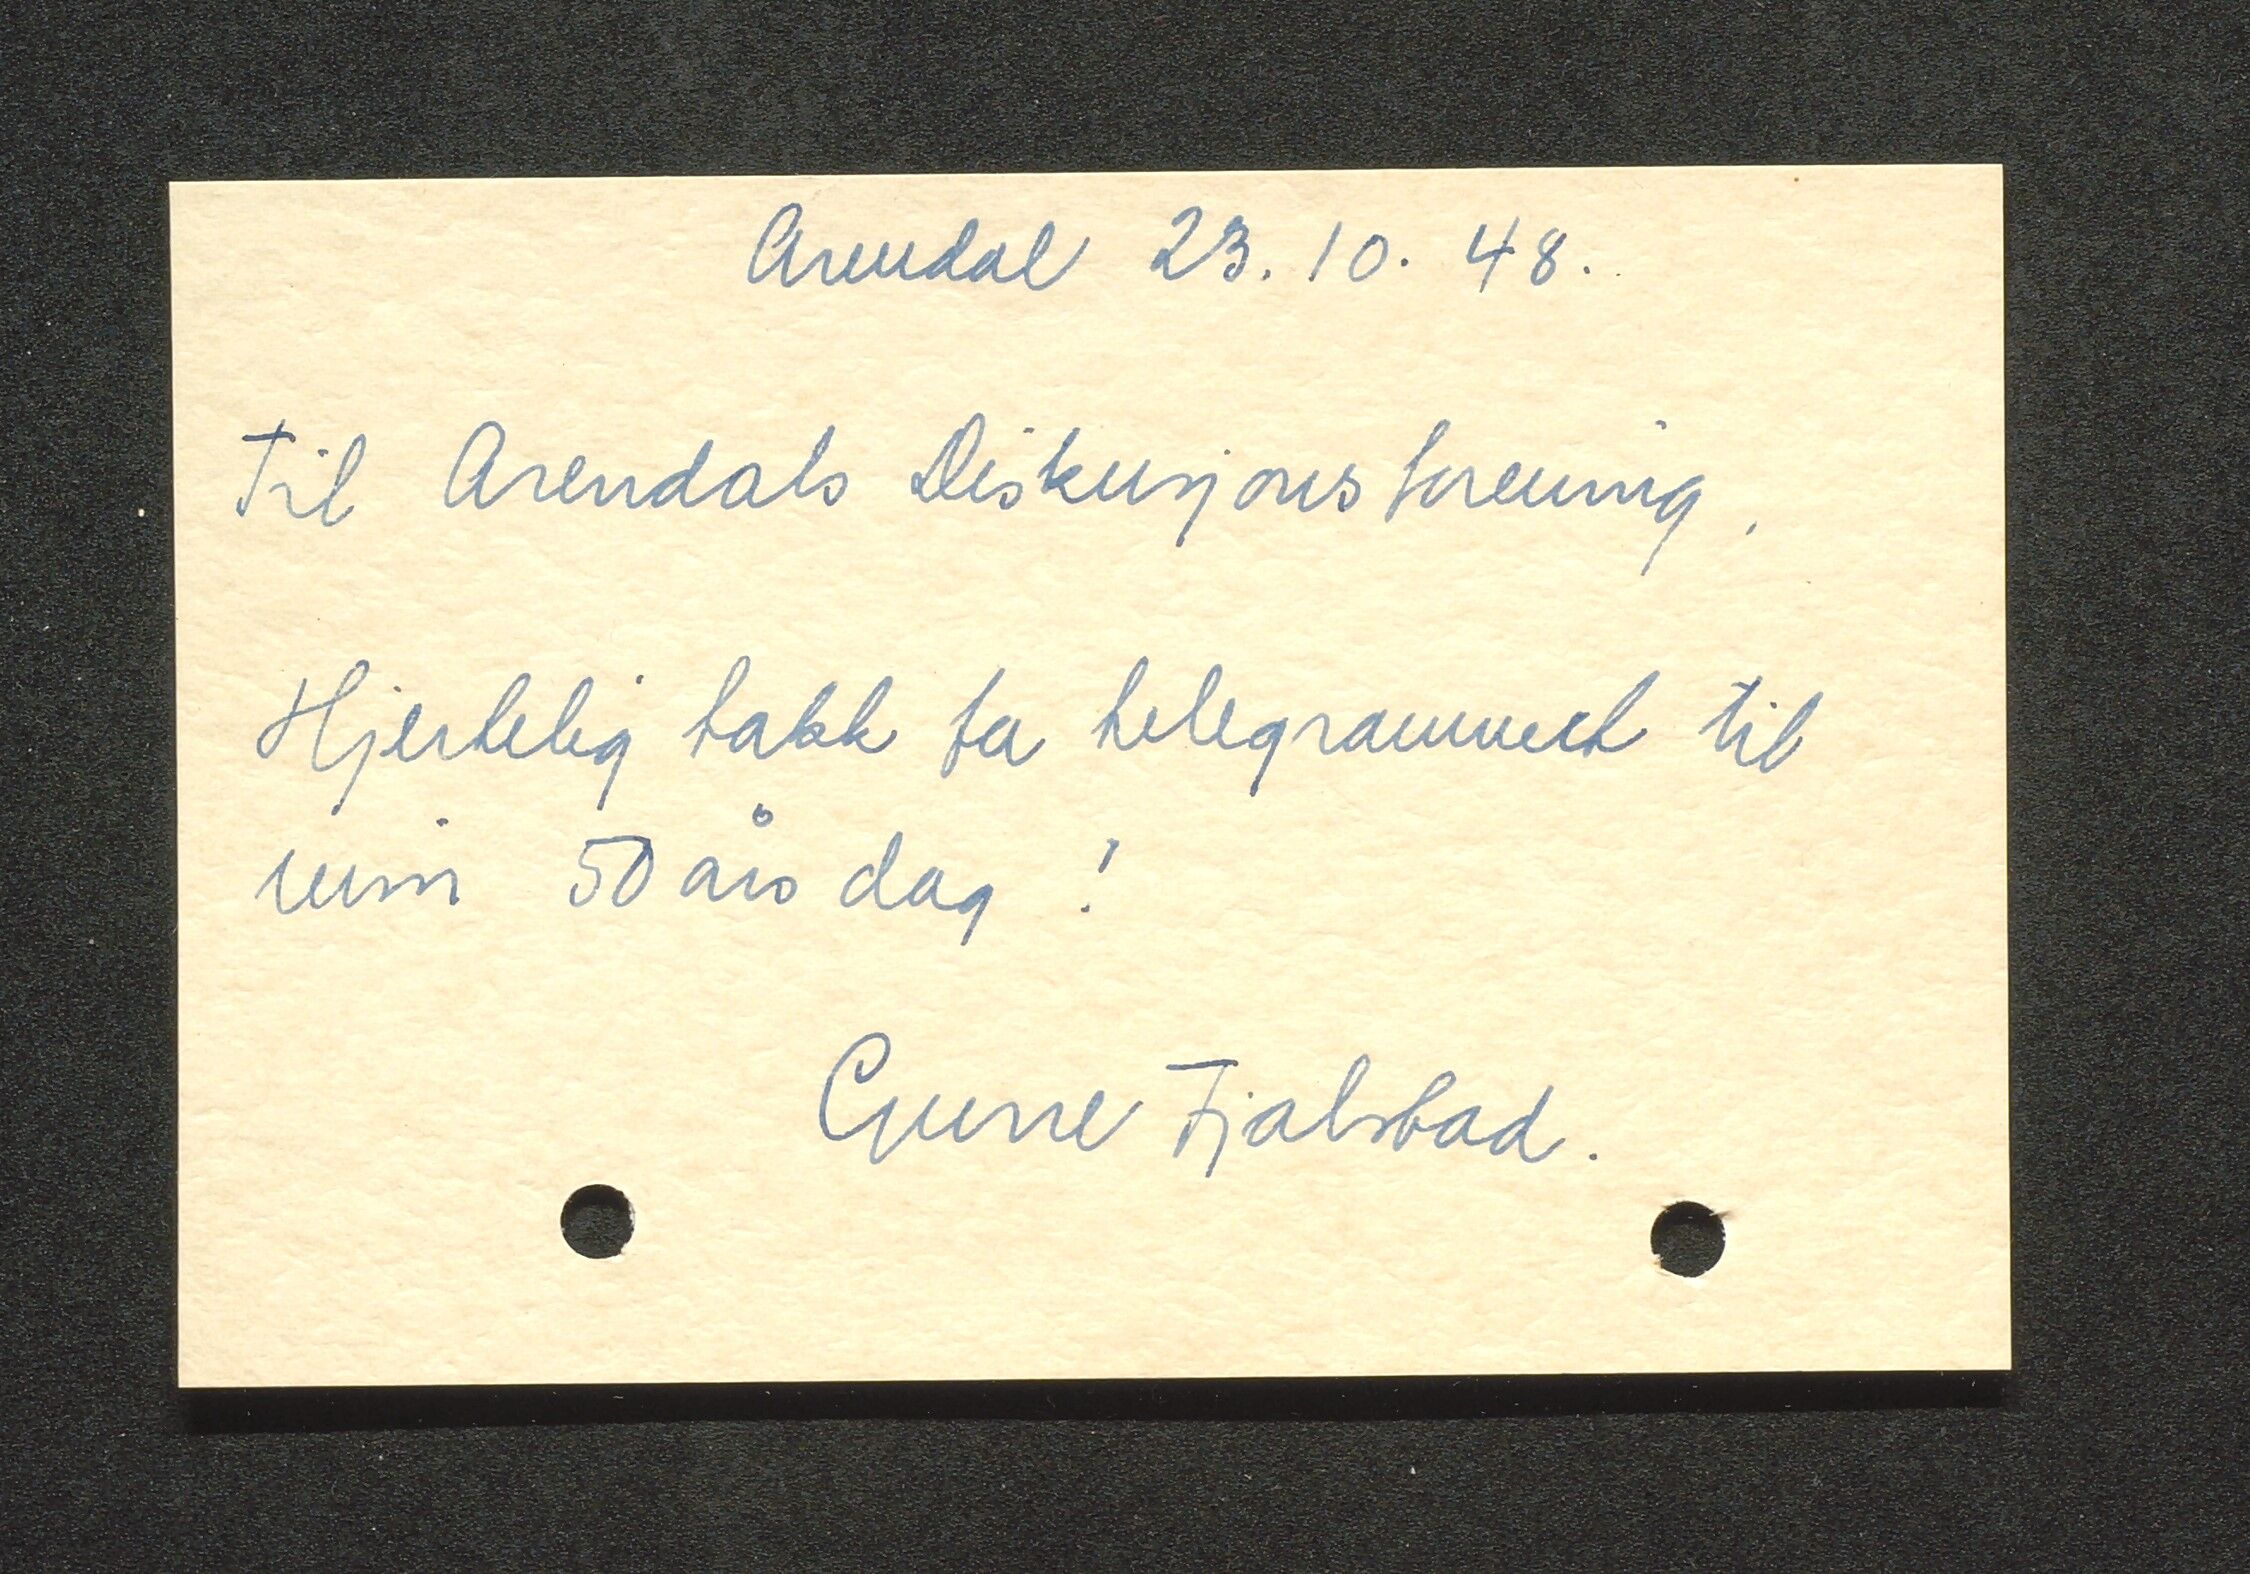 Arendal 23.10.48.
Til Arendals Diskusjonsforening,
Hjertelig takk for telegrammet til
min 50 års dag!
Gunne Fjalstad.